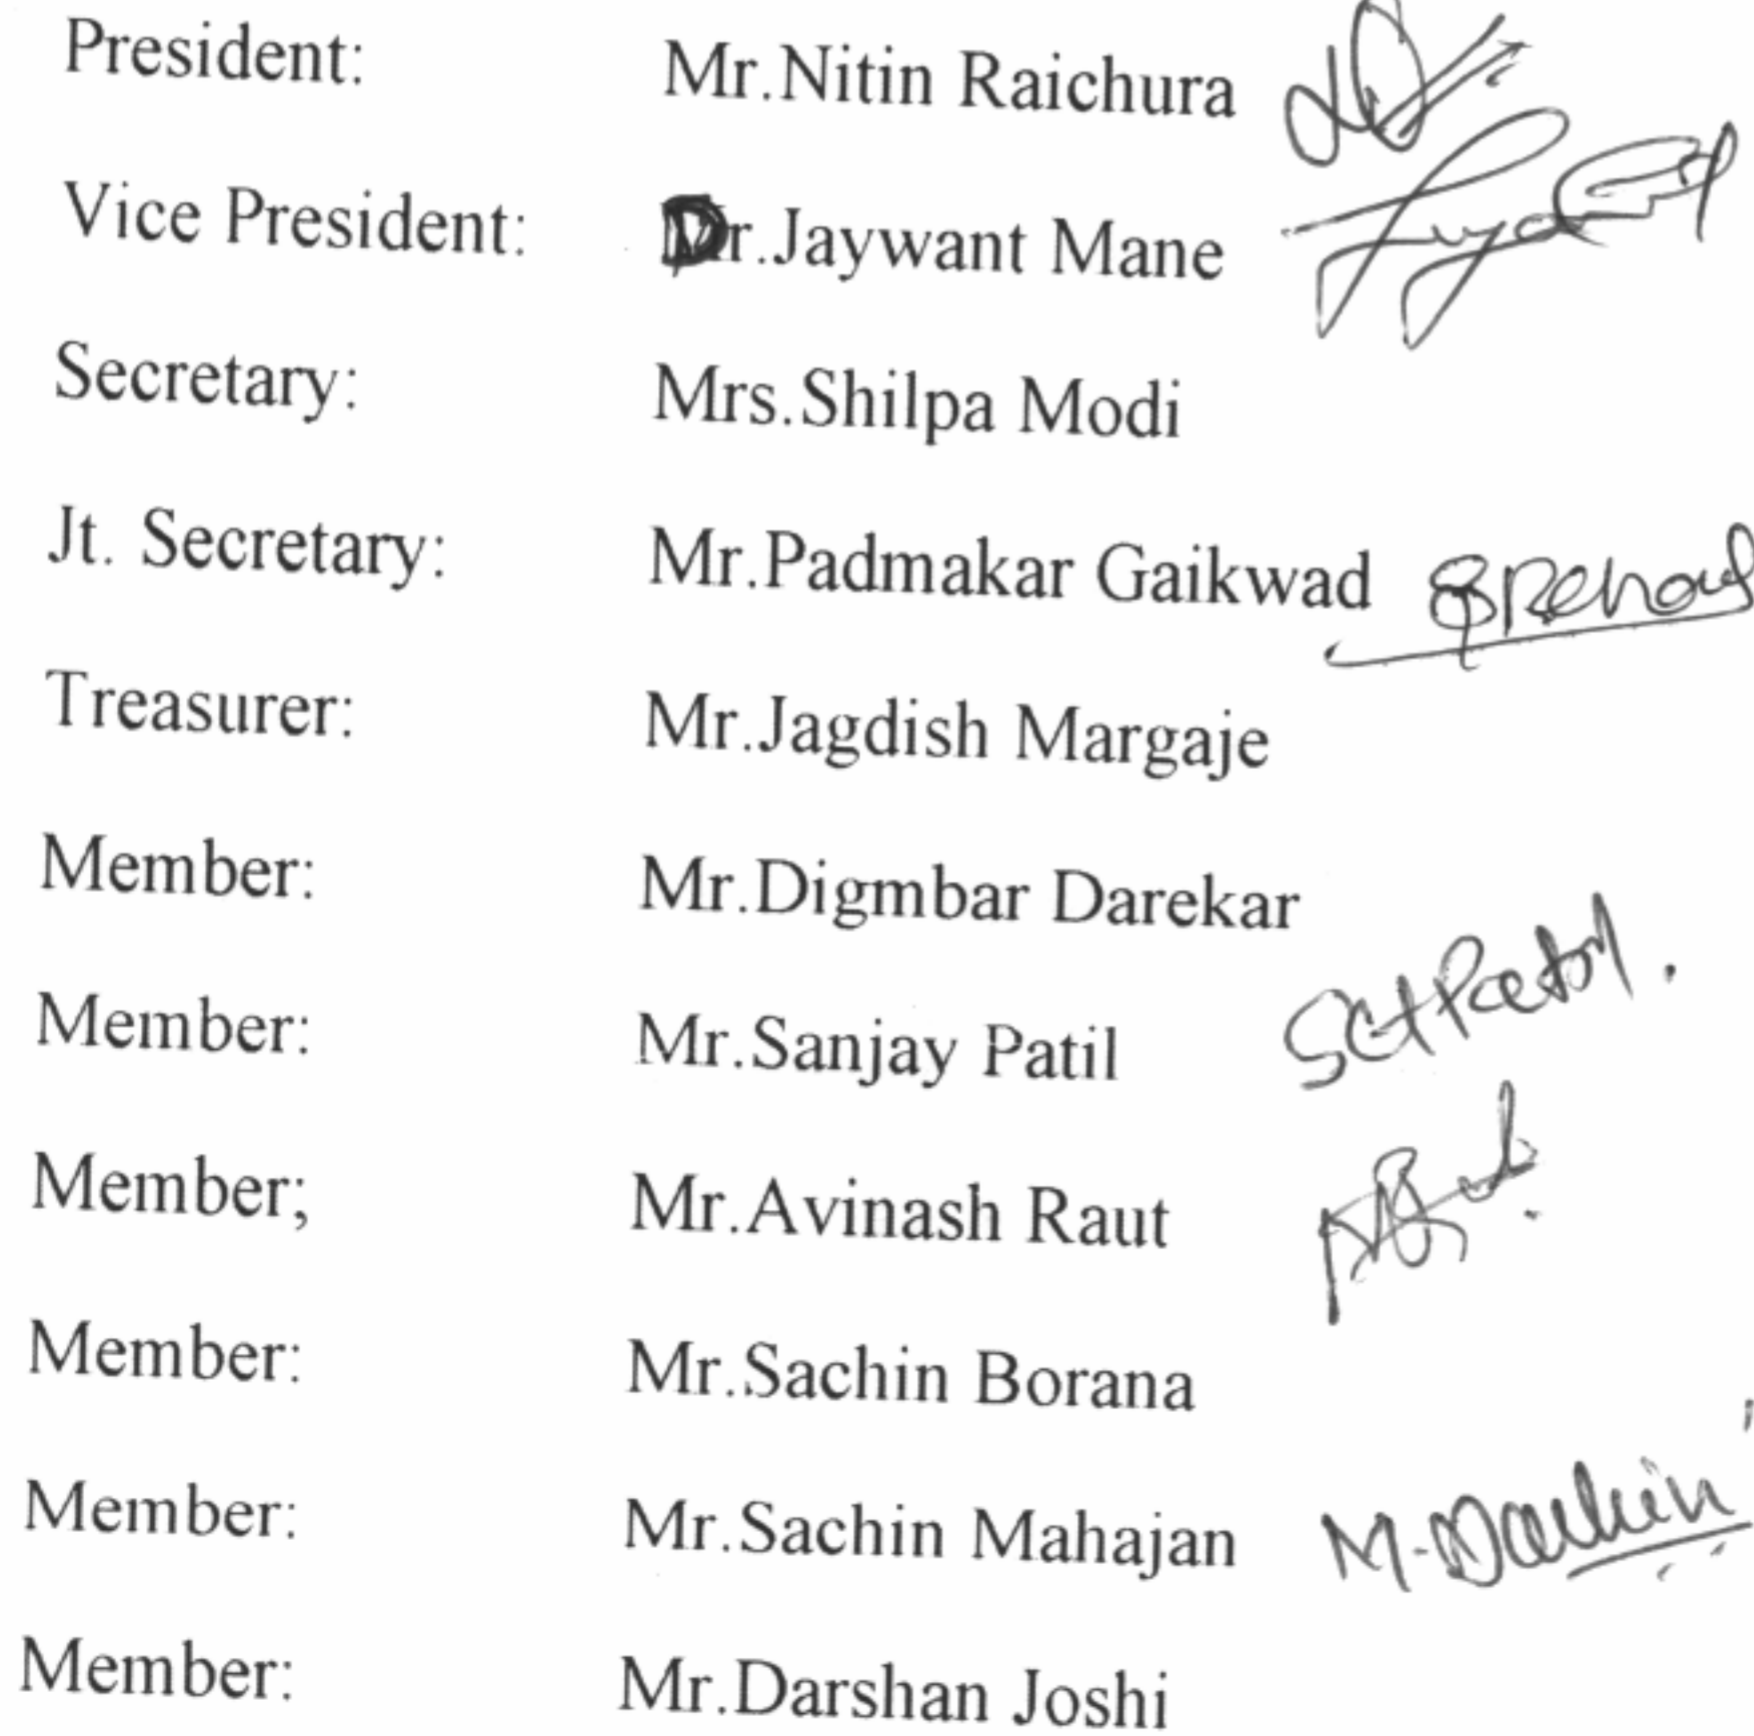 President: Mr.Nitin Raichura
Vice President: Dr.Jaywant Mane
Secretary: Mrs.Shilpa Modi
Jt. Secretary: Mr.Padmakar Gaikwad
Treasurer: Mr.Jagdish Margaje
Member: Mr.Digmbar Darekar
Member: Mr.Sanjay Patil
Member; Mr.Avinash Raut
Member: Mr.Sachin Borana
Member: Mr.Sachin Mahajan
Member: Mr.Darshan Joshi